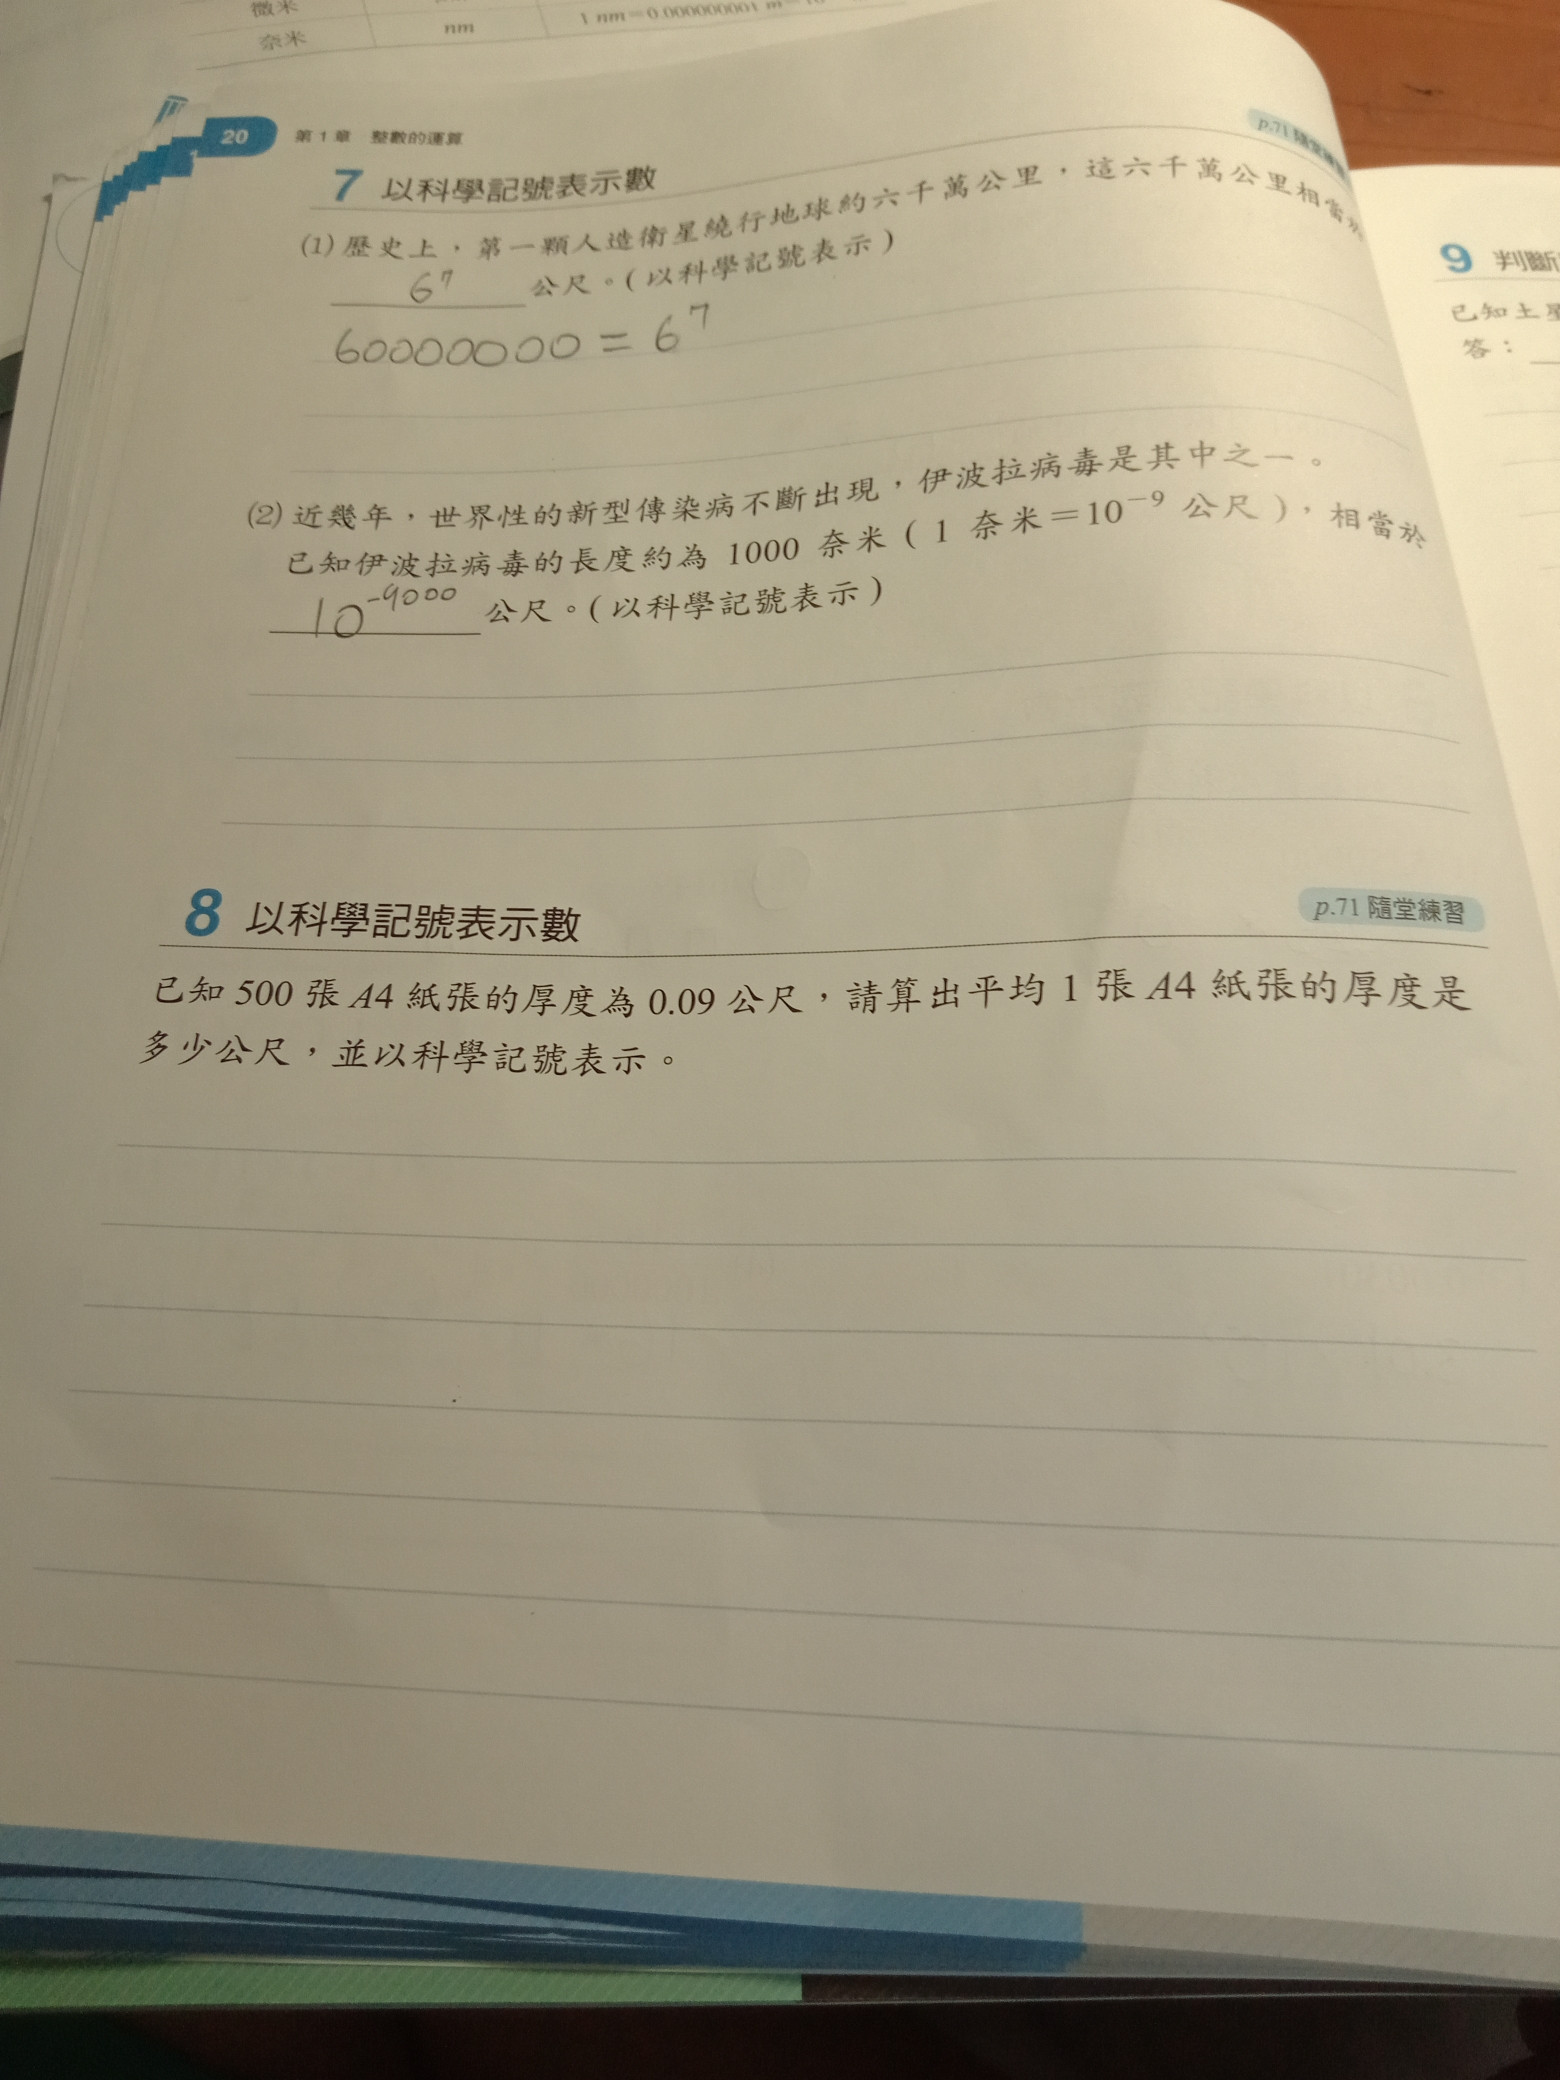 奈米 nm 1 nm=0.000000001 m
20 第1章 整數的運算
7 以科學記號表示數
p.71 隨堂練習
(1) 歷史上，第一顆人造衛星繞行地球約六千萬公里，這六千萬公里相當於
6⁷ 公尺。(以科學記號表示)
60000000 = 6⁷
(2) 近幾年，世界性的新型傳染病不斷出現，伊波拉病毒是其中之一。
已知伊波拉病毒的長度約為 1000 奈米 ( 1 奈米=10⁻⁹ 公尺 )，相當於
10⁻⁹⁰⁰⁰ 公尺。(以科學記號表示)
8 以科學記號表示數
p.71 隨堂練習
已知 500 張 A4 紙張的厚度為 0.09 公尺，請算出平均 1 張 A4 紙張的厚度是
多少公尺，並以科學記號表示。
9 判斷
已知土星
答：